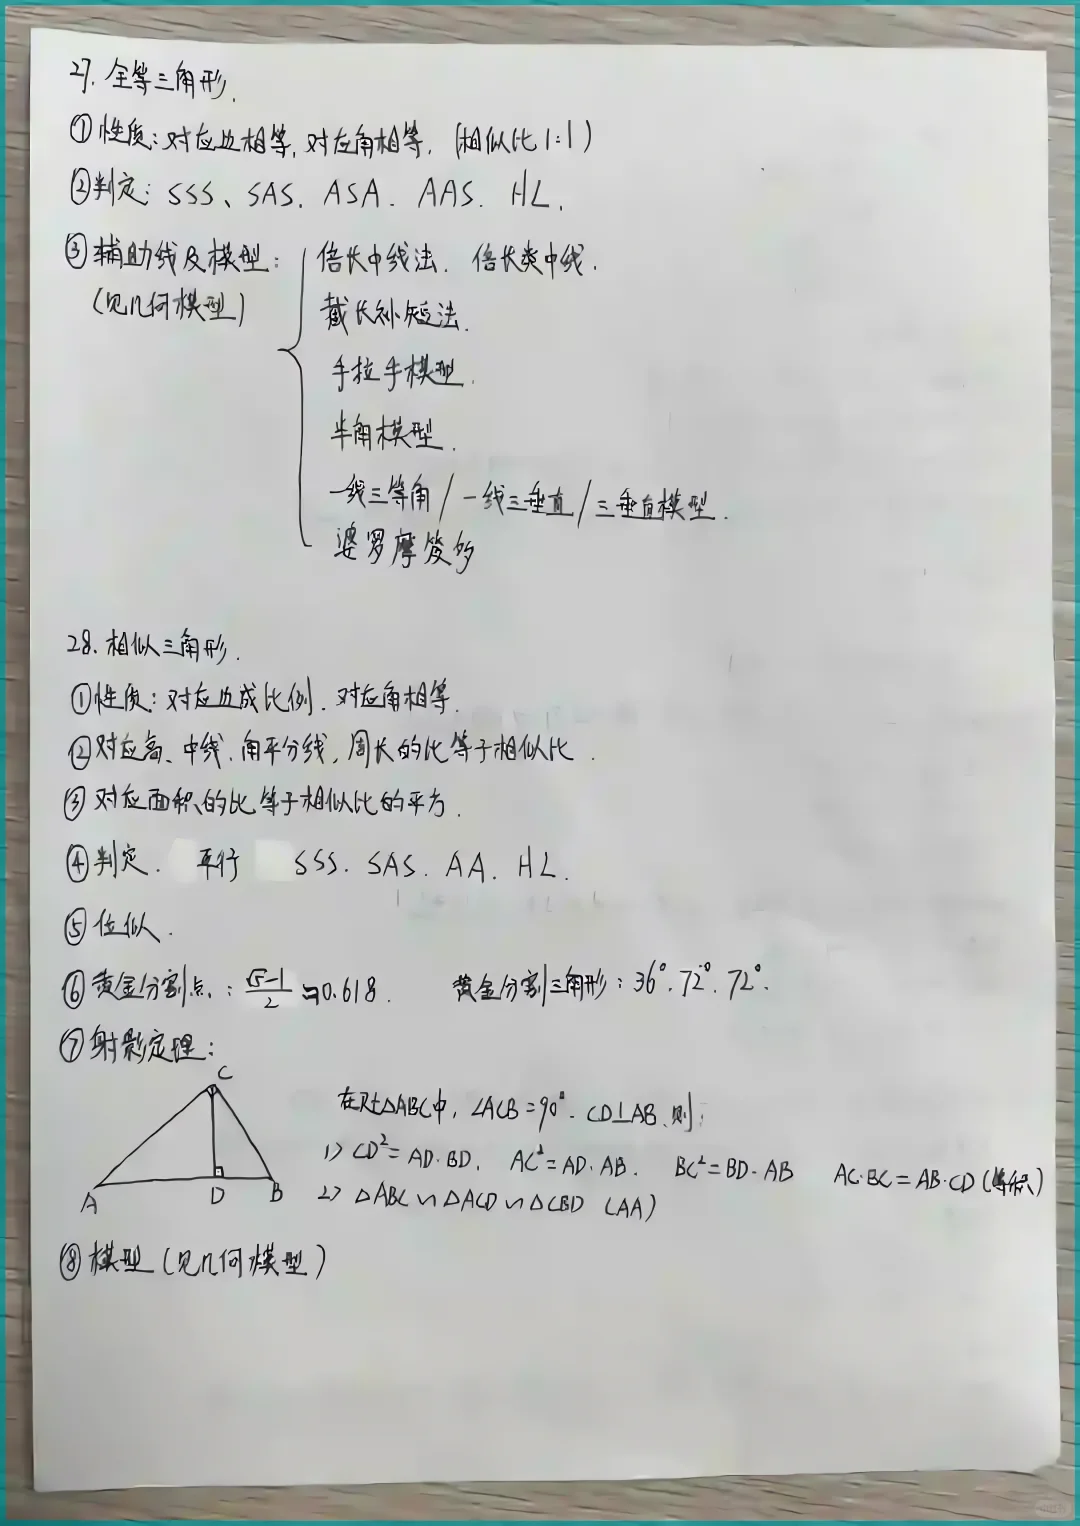 27. 全等三角形.
①性质:对应边相等,对应角相等.(相似比1:1)
②判定:SSS、SAS.ASA.AAS.HL.
③辅助线及模型:
(见几何模型)
倍长中线法.倍长类中线.
截长补短法.
手拉手模型.
半角模型.
一线三等角/一线三垂直/三垂直模型.
婆罗摩笈多
28.相似三角形.
①性质:对应边成比例.对应角相等.
②对应高、中线.角平分线,周长的比等于相似比.
③对应面积的比等于相似比的平方.
④判定.平行 SSS.SAS.AA.HL.
⑤位似.
⑥黄金分割点:(√5-1)/2≈0.618. 黄金分割三角形:36°.72°.72°.
⑦射影定理:
C
A D B
在Rt△ABC中,∠ACB=90°.CD⊥AB.则:
1) CD²=AD·BD. AC²=AD·AB. BC²=BD·AB AC·BC=AB·CD(等积)
2) △ABC∽△ACD∽△CBD (AA)
⑧模型(见几何模型)